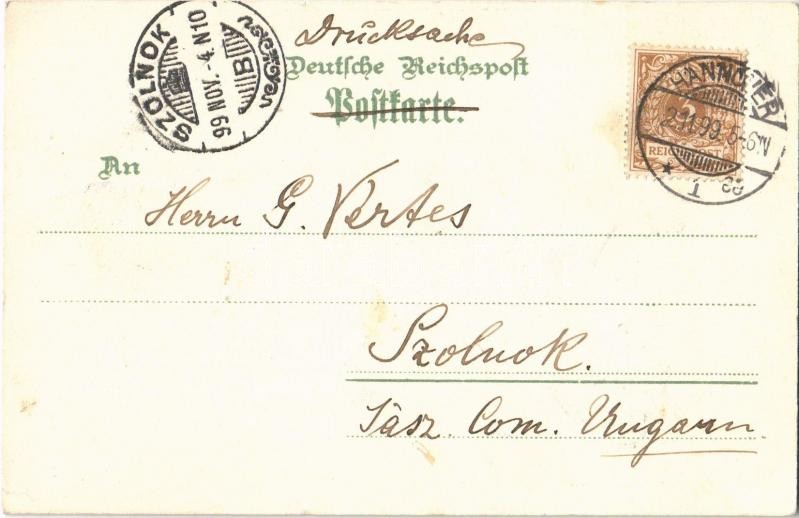 Drucksache
Deutsche Reichspost
Postkarte.
An
Herrn G. Vertes
Szolnok.
Jász. Com. Ungarn.
SZOLNOK
99 NOV. 4. N 10
B
HANNOVER
2.11.99. 5-6N.
* 1 ce
3
REICHSPOST